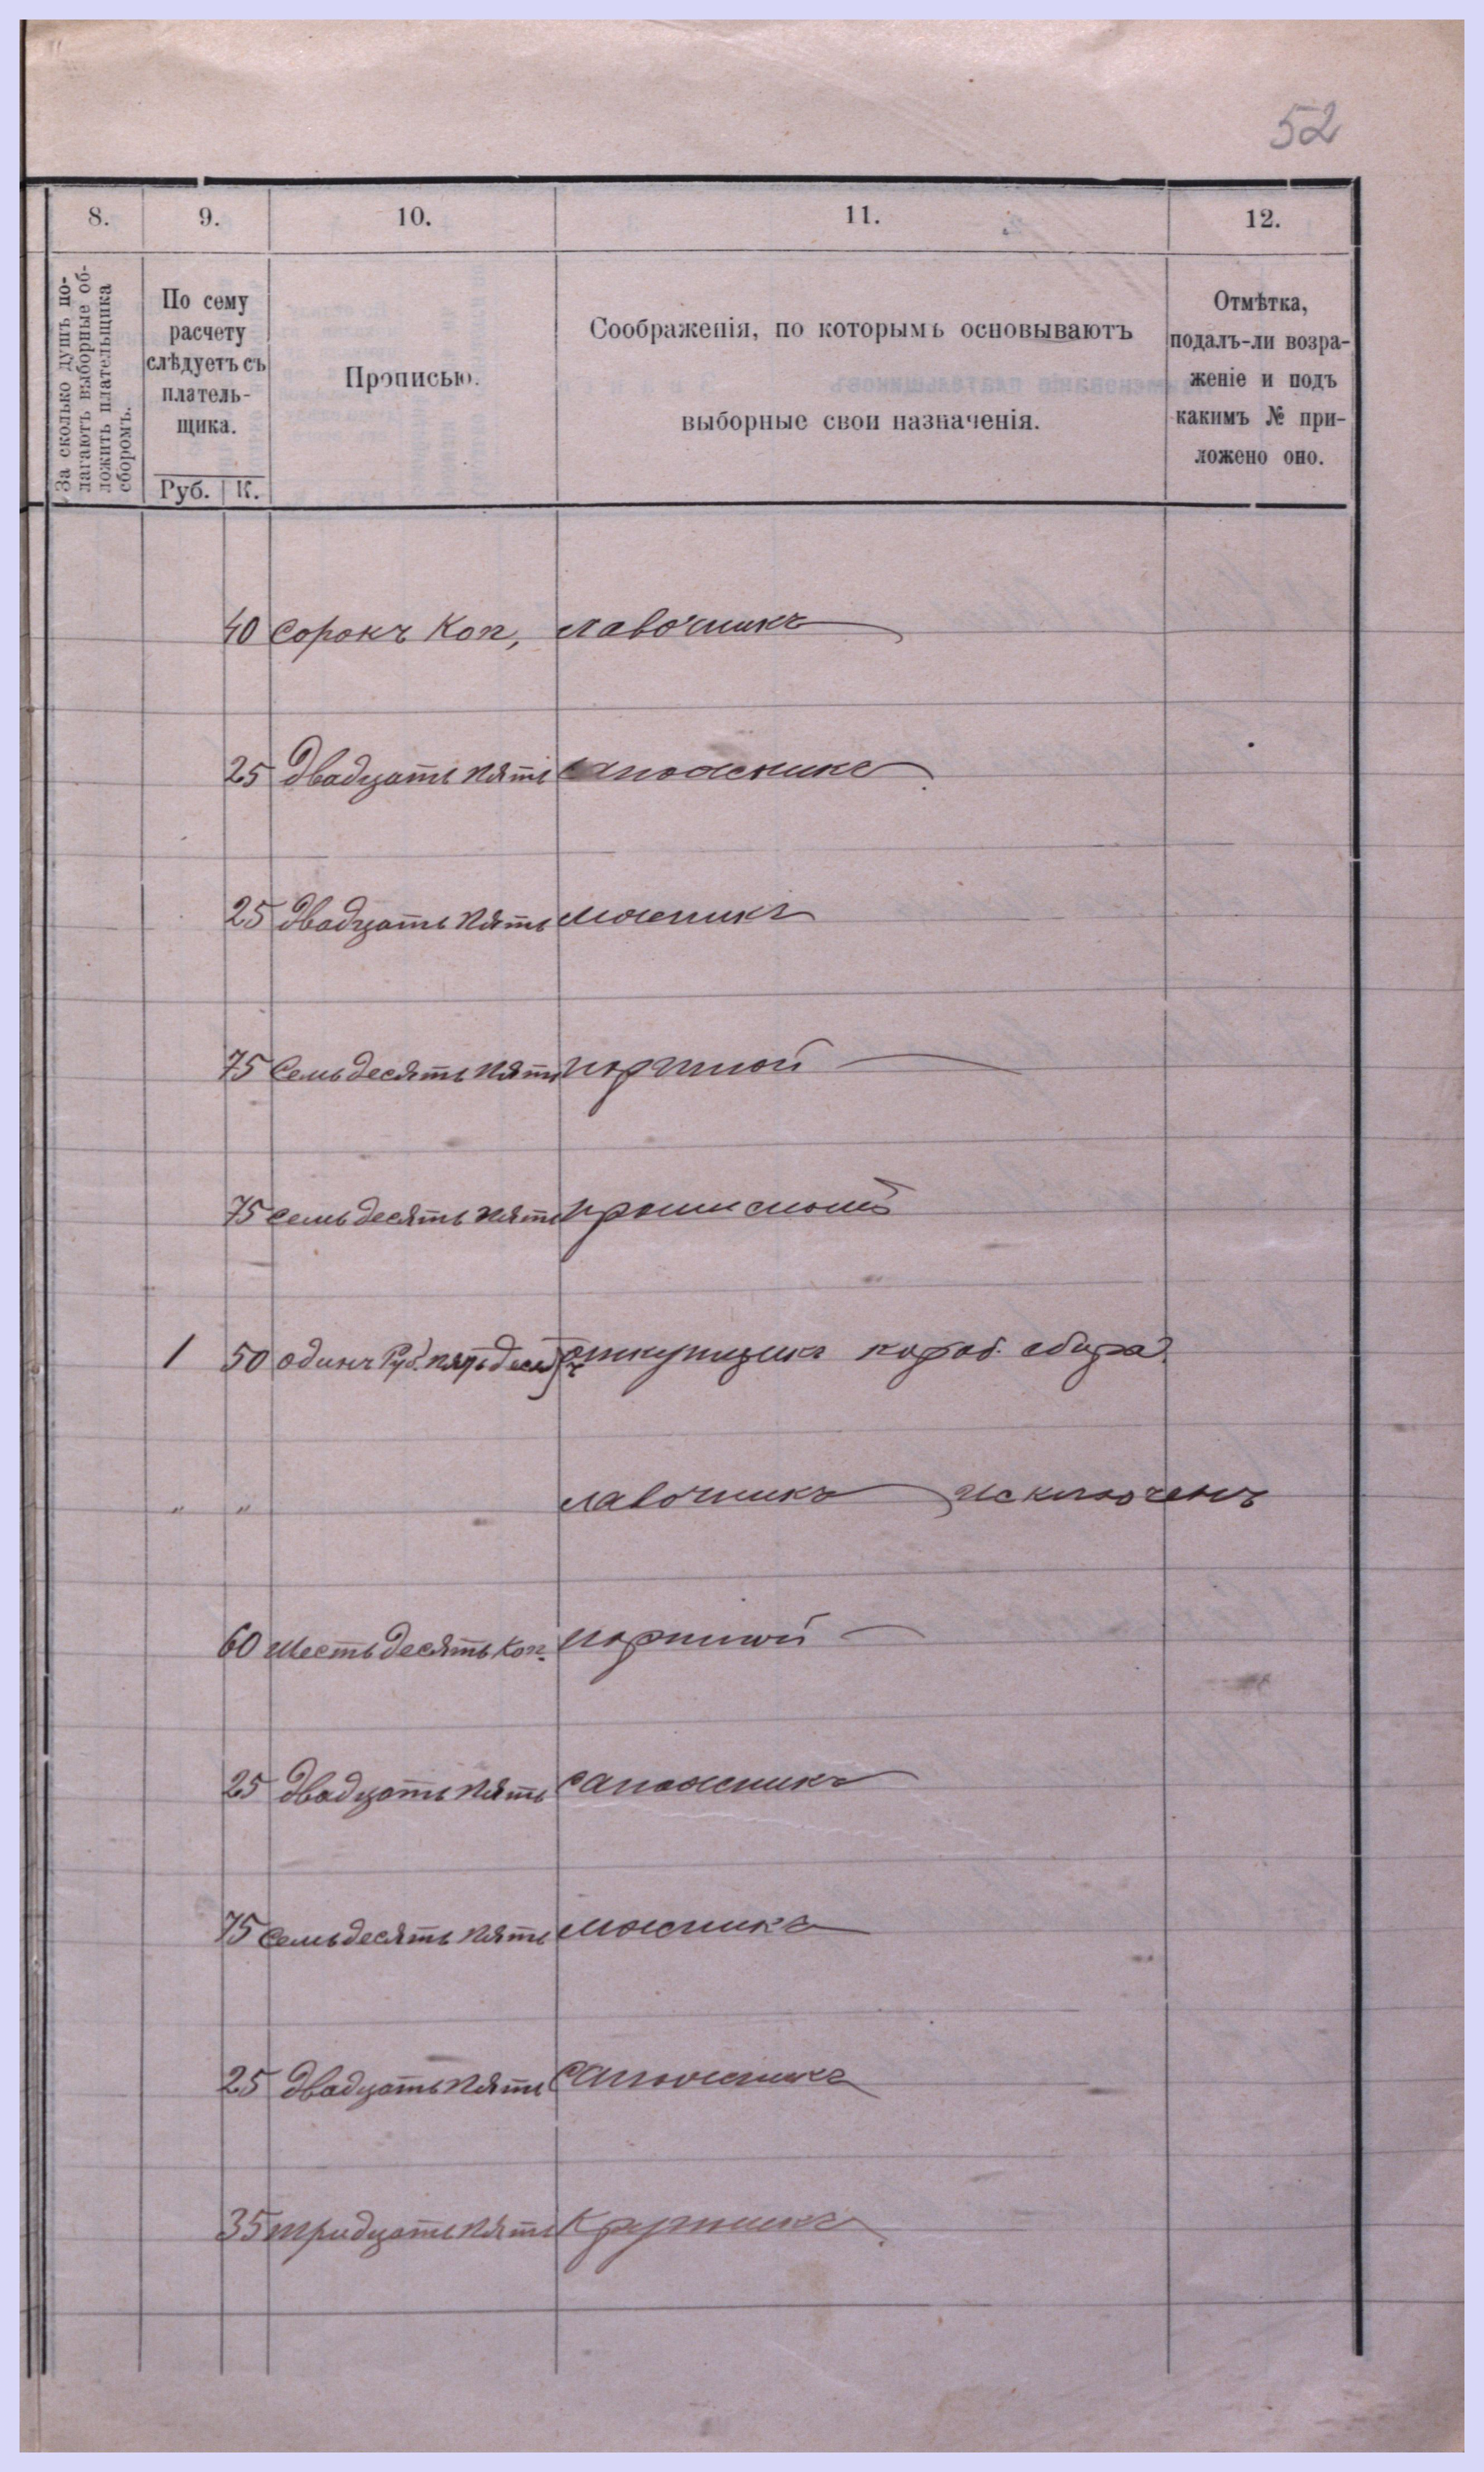 52
8. 9. 10. 11. 12.
За сколько душъ по-
лагаютъ выборные об-
ложить плательщика
сборомъ.
По сему
расчету
слѣдуетъ съ
платель-
щика.
Руб. К.
Прописью.
Соображенія, по которымъ основываютъ
выборные свои назначенія.
Отмѣтка,
подалъ-ли возра-
женіе и подъ
какимъ № при-
ложено оно.
40 Сорокъ Коп, лавочникъ
25 Двадцать пять сапожникъ
25 Двадцать пять
75 Семьдесять пять портной
75 семьдесять пять
1 50 одинъ Руб. пятьдесят откупщикъ короб. сбора
" " лавочникъ исключенъ
60 шестьдесять Коп. портной
25 Двадцать пять сапожникъ
75 Семьдесять пять
25 Двадцать пять сапожникъ
35 тридцать пять